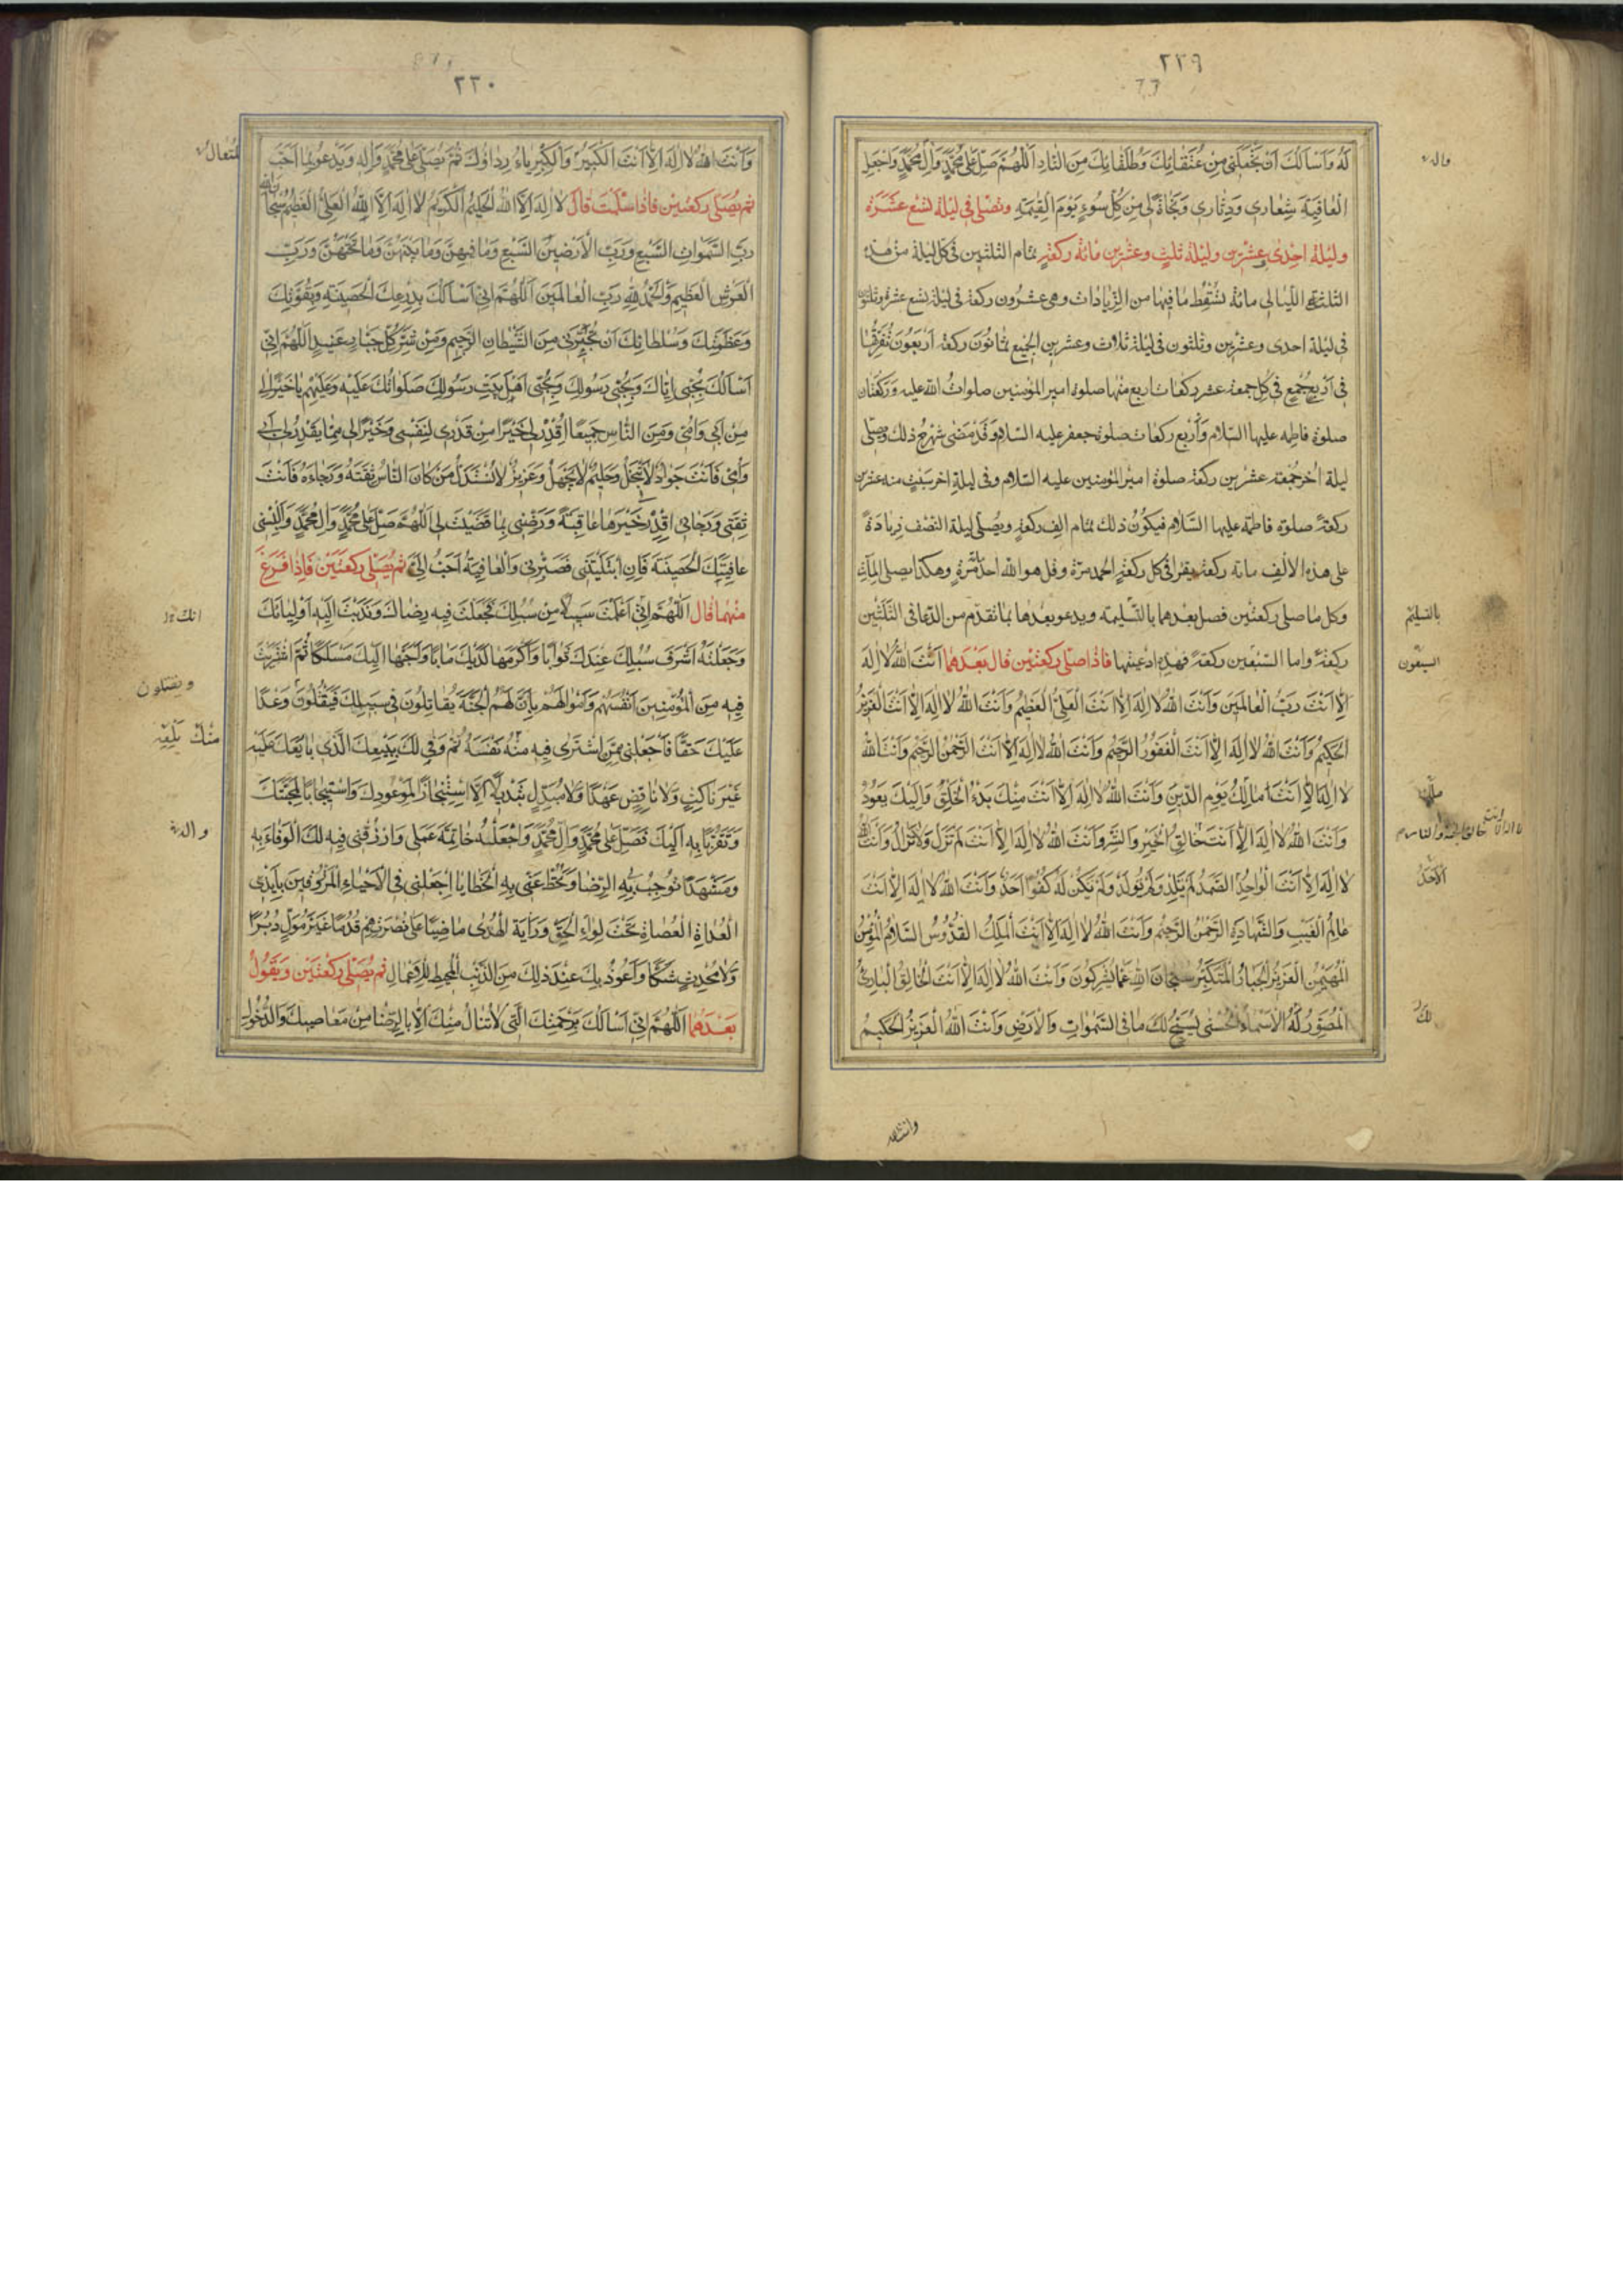 ٢٢٩
لَهُ وَاَسْأَلُكَ اَنْ تَجْعَلَنِي مِنْ عُتَقَائِكَ وَطُلَقَائِكَ مِنَ النَّارِ اَللّٰهُمَّ صَلِّ عَلٰى مُحَمَّدٍ وَاٰلِ مُحَمَّدٍ وَاجْعَلِ
الْعَافِيَةَ شِعَارِي وَدِثَارِي وَنَجَاةً لِي مِنْ كُلِّ سُوءٍ يَوْمَ الْقِيٰمَةِ وتصلى فى ليلة تسع عَشَرَة
وليلة احدى وعشرين وليلة ثلث وعشرين مائة ركعةٍ تمام الثلثين فى كل ليلة من هذه
الثلثة الليالى مائة تسقط ما فيها من الزيادات وهى عشرون ركعة فى ليلة تسع عشرة وثلثون
فى ليلة احدى وعشرين وثلثون فى ليلة ثلاث وعشرين الجميع ثمانون ركعة اربعون تفرقها
فى اربع جمع فى كل جمعة عشر ركعات اربع منها صلوة امير المؤمنين صلوات الله عليه وركعتان
صلوة فاطمه عليها السلام واربع ركعات صلوة جعفر عليه السلام وقد مضى شرح ذلك وصلى
ليلة اخر جمعة عشرين ركعة صلوة امير المؤمنين عليه السلام وفى ليلة اخر سبت منه عشرين
ركعة صلوة فاطمة عليها السلام فيكون ذلك تمام الف ركعة ويصلى ليلة النصف زيادة
على هذه الالف مائة ركعة يقرا فى كل ركعة الحمد مرة وقل هو الله احد مرة وهكذا يصلى المآت
وكل ما صلى ركعتين فصل بعدهما بالتسليمه ويدعو بعدها بما تقدم من الدعا فى الثلثين
ركعة واما السبعين ركعة فهذه ادعيتها فاذا صلى ركعتين قال بعدهما اَنْتَ اللهُ لَا اِلٰهَ
اِلَّا اَنْتَ رَبُّ الْعَالَمِينَ وَاَنْتَ اللهُ لَا اِلٰهَ اِلَّا اَنْتَ الْعَلِيُّ الْعَظِيمُ وَاَنْتَ اللهُ لَا اِلٰهَ اِلَّا اَنْتَ الْعَزِيزُ
الْحَكِيمُ وَاَنْتَ اللهُ لَا اِلٰهَ اِلَّا اَنْتَ الْغَفُورُ الرَّحِيمُ وَاَنْتَ اللهُ لَا اِلٰهَ اِلَّا اَنْتَ الرَّحْمٰنُ الرَّحِيمُ وَاَنْتَ اللهُ
لَا اِلٰهَ اِلَّا اَنْتَ مَالِكُ يَوْمِ الدِّينِ وَاَنْتَ اللهُ لَا اِلٰهَ اِلَّا اَنْتَ مِنْكَ بَدْءُ الْخَلْقِ وَاِلَيْكَ يَعُودُ
وَاَنْتَ اللهُ لَا اِلٰهَ اِلَّا اَنْتَ خَالِقُ الْخَيْرِ وَالشَّرِّ وَاَنْتَ اللهُ لَا اِلٰهَ اِلَّا اَنْتَ لَمْ تَزَلْ وَلَا تَزَالُ وَاَنْتَ اللهُ
لَا اِلٰهَ اِلَّا اَنْتَ الْوَاحِدُ الصَّمَدُ لَمْ يَلِدْ وَلَمْ يُولَدْ وَلَمْ يَكُنْ لَهُ كُفُوًا اَحَدٌ وَاَنْتَ اللهُ لَا اِلٰهَ اِلَّا اَنْتَ
عَالِمُ الْغَيْبِ وَالشَّهَادَةِ الرَّحْمٰنُ الرَّحِيمُ وَاَنْتَ اللهُ لَا اِلٰهَ اِلَّا اَنْتَ الْمَلِكُ الْقُدُّوسُ السَّلَامُ الْمُؤْمِنُ
الْمُهَيْمِنُ الْعَزِيزُ الْجَبَّارُ الْمُتَكَبِّرُ سُبْحَانَ اللهِ عَمَّا يُشْرِكُونَ وَاَنْتَ اللهُ لَا اِلٰهَ اِلَّا اَنْتَ الْخَالِقُ الْبَارِئُ
الْمُصَوِّرُ لَهُ الْاَسْمَاءُ الْحُسْنٰى يُسَبِّحُ لَكَ مَا فِي السَّمٰوَاتِ وَالْاَرْضِ وَاَنْتَ اللهُ الْعَزِيزُ الْحَكِيمُ
واله
بالتسليم
السبعون
الاحد
لك
وانت الله
٢٣٠
وَاَنْتَ اللهُ لَا اِلٰهَ اِلَّا اَنْتَ الْكَبِيرُ وَالْكِبْرِيَاءُ رِدَاؤُكَ ثُمَّ يُصَلِّي عَلٰى مُحَمَّدٍ وَاٰلِهِ وَيَدْعُو بِمَا اَحَبَّ
ثم يصلى ركعتين فاذا سلمت قال لَا اِلٰهَ اِلَّا اللهُ الْحَلِيمُ الْكَرِيمُ لَا اِلٰهَ اِلَّا اللهُ الْعَلِيُّ الْعَظِيمُ سُبْحَانَ اللهِ
رَبِّ السَّمٰوَاتِ السَّبْعِ وَرَبِّ الْاَرَضِينَ السَّبْعِ وَمَا فِيهِنَّ وَمَا بَيْنَهُنَّ وَمَا تَحْتَهُنَّ وَرَبِّ
الْعَرْشِ الْعَظِيمِ وَالْحَمْدُ لِلّٰهِ رَبِّ الْعَالَمِينَ اَللّٰهُمَّ اِنِّي اَسْاَلُكَ بِدِرْعِكَ الْحَصِينَةِ وَبِقُوَّتِكَ
وَعَظَمَتِكَ وَسُلْطَانِكَ اَنْ تُجِيرَنِي مِنَ الشَّيْطَانِ الرَّجِيمِ وَمِنْ شَرِّ كُلِّ جَبَّارٍ عَنِيدٍ اَللّٰهُمَّ اِنِّي
اَسْاَلُكَ بِحُبِّي اِيَّاكَ وَبِحُبِّي رَسُولَكَ وَبِحُبِّي اَهْلَ بَيْتِ رَسُولِكَ صَلَوَاتُكَ عَلَيْهِ وَعَلَيْهِمْ يَا خَيْرًا لِي
مِنْ اَبِي وَاُمِّي وَمِنَ النَّاسِ جَمِيعًا اقْدِرْ لِي خَيْرًا مِنْ قَدَرِي لِنَفْسِي وَخَيْرًا لِي مِمَّا يَقْدِرُ لِي اَبِي
وَاُمِّي فَاَنْتَ جَوَادٌ لَا تَبْخَلُ وَحَلِيمٌ لَا تَجْهَلُ وَعَزِيزٌ لَا تُسْتَذَلُّ مَنْ كَانَ النَّاسُ ثِقَتَهُ وَرَجَاءَهُ فَاَنْتَ
ثِقَتِي وَرَجَائِي اقْدِرْ خَيْرَهَا عَاقِبَةً وَرَضِّنِي بِمَا قَضَيْتَ لِي اَللّٰهُمَّ صَلِّ عَلٰى مُحَمَّدٍ وَاٰلِ مُحَمَّدٍ وَاَلْبِسْنِي
عَافِيَتَكَ الْحَصِينَةَ فَاِنِ ابْتَلَيْتَنِي فَصَبِّرْنِي وَالْعَافِيَةُ اَحَبُّ اِلَيَّ ثم يصلى ركعتين فاذا فرغ
منهما قال اَللّٰهُمَّ اِنِّي اَعْلَمْتَ سَبِيلًا مِنْ سُبُلِكَ فَجَعَلْتَ فِيهِ رِضَاكَ وَنَدَبْتَ اِلَيْهِ اَوْلِيَائَكَ
وَجَعَلْتَهُ اَشْرَفَ سُبُلِكَ عِنْدَكَ ثَوَابًا وَاَكْرَمَهَا لَدَيْكَ مَاٰبًا وَاَحَبَّهَا اِلَيْكَ مَسْلَكًا ثُمَّ اشْتَرَيْتَ
فِيهِ مِنَ الْمُؤْمِنِينَ اَنْفُسَهُمْ وَاَمْوَالَهُمْ بِاَنَّ لَهُمُ الْجَنَّةَ يُقَاتِلُونَ فِي سَبِيلِكَ فَيَقْتُلُونَ وَعْدًا
عَلَيْكَ حَقًّا فَاجْعَلْنِي مِمَّنِ اشْتَرٰى فِيهِ مِنْهُ نَفْسَهُ ثُمَّ وَفٰى لَكَ بِبَيْعِكَ الَّذِي بَايَعَكَ عَلَيْهِ
غَيْرَ نَاكِثٍ وَلَا نَاقِضٍ عَهْدًا وَلَا مُبَدِّلٍ تَبْدِيلًا اِلَّا اسْتِنْجَازًا لِمَوْعُودِكَ وَاسْتِيجَابًا لِمَحَبَّتِكَ
وَتَقَرُّبًا بِهِ اِلَيْكَ فَصَلِّ عَلٰى مُحَمَّدٍ وَاٰلِ مُحَمَّدٍ وَاجْعَلْهُ خَاتِمَةَ عَمَلِي وَارْزُقْنِي فِيهِ لَكَ الْوَفَاءَ بِهِ
وَمَشْهَدًا تُوجِبُ بِهِ الرِّضَا وَتَحُطُّ عَنِّي بِهِ الْخَطَايَا اجْعَلْنِي فِي الْاَحْيَاءِ الْمَرْزُوقِينَ بِاَيْدِي
الْعُدَاةِ الْعُصَاةِ تَحْتَ لِوَاءِ الْحَقِّ وَرَايَةِ الْهُدٰى مَاضِيًا عَلٰى نُصْرَتِهِمْ قُدُمًا غَيْرَ مُوَلٍّ دُبُرًا
وَلَا مُحْدِثٍ شَكًّا وَاَعُوذُ بِكَ عِنْدَ ذٰلِكَ مِنَ الذَّنْبِ الْمُحْبِطِ لِلْاَعْمَالِ ثم يصلى ركعتين ويقول
بعدهما اَللّٰهُمَّ اِنِّي اَسْاَلُكَ بِرَحْمَتِكَ الَّتِي لَا تُنَالُ مِنْكَ اِلَّا بِالرِّضَا مِنْ مَعَاصِيكَ وَالدُّخُولِ
المتعال
انك
ويقتلون
منك
واله